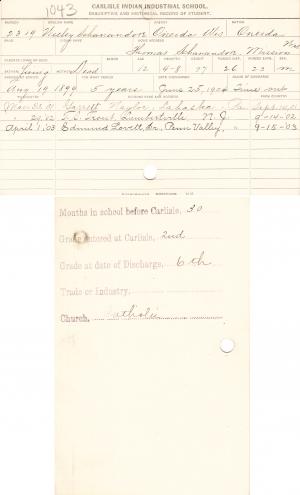 1043
CARLISLE INDIAN INDUSTRIAL SCHOOL.
DESCRIPTIVE AND HISTORICAL RECORD OF STUDENT.
NUMBER ENGLISH NAME AGENCY NATION
2319 Wesley Schanandon Oneida Wis Oneida
BAND INDIAN NAME HOME ADDRESS
Thomas Schanandon, Mission Wis
Living Dead 12 4-8 77 26 22 M
Aug 19 1899 5 years June 25, 1904 Time out
Mar 30 01 Garrett Naylor, Lahaska Pa Sept 14 01
" 29, 02 Lambertville N. J. 9-14-02
April 1, 03 Edmund Lovett, Sr. Penn Valley, " 9-15-03
Months in school before Carlisle, 30
Grade entered at Carlisle, 2nd
Grade at date of Discharge, 6th
Trade or Industry,
Church, Catholic